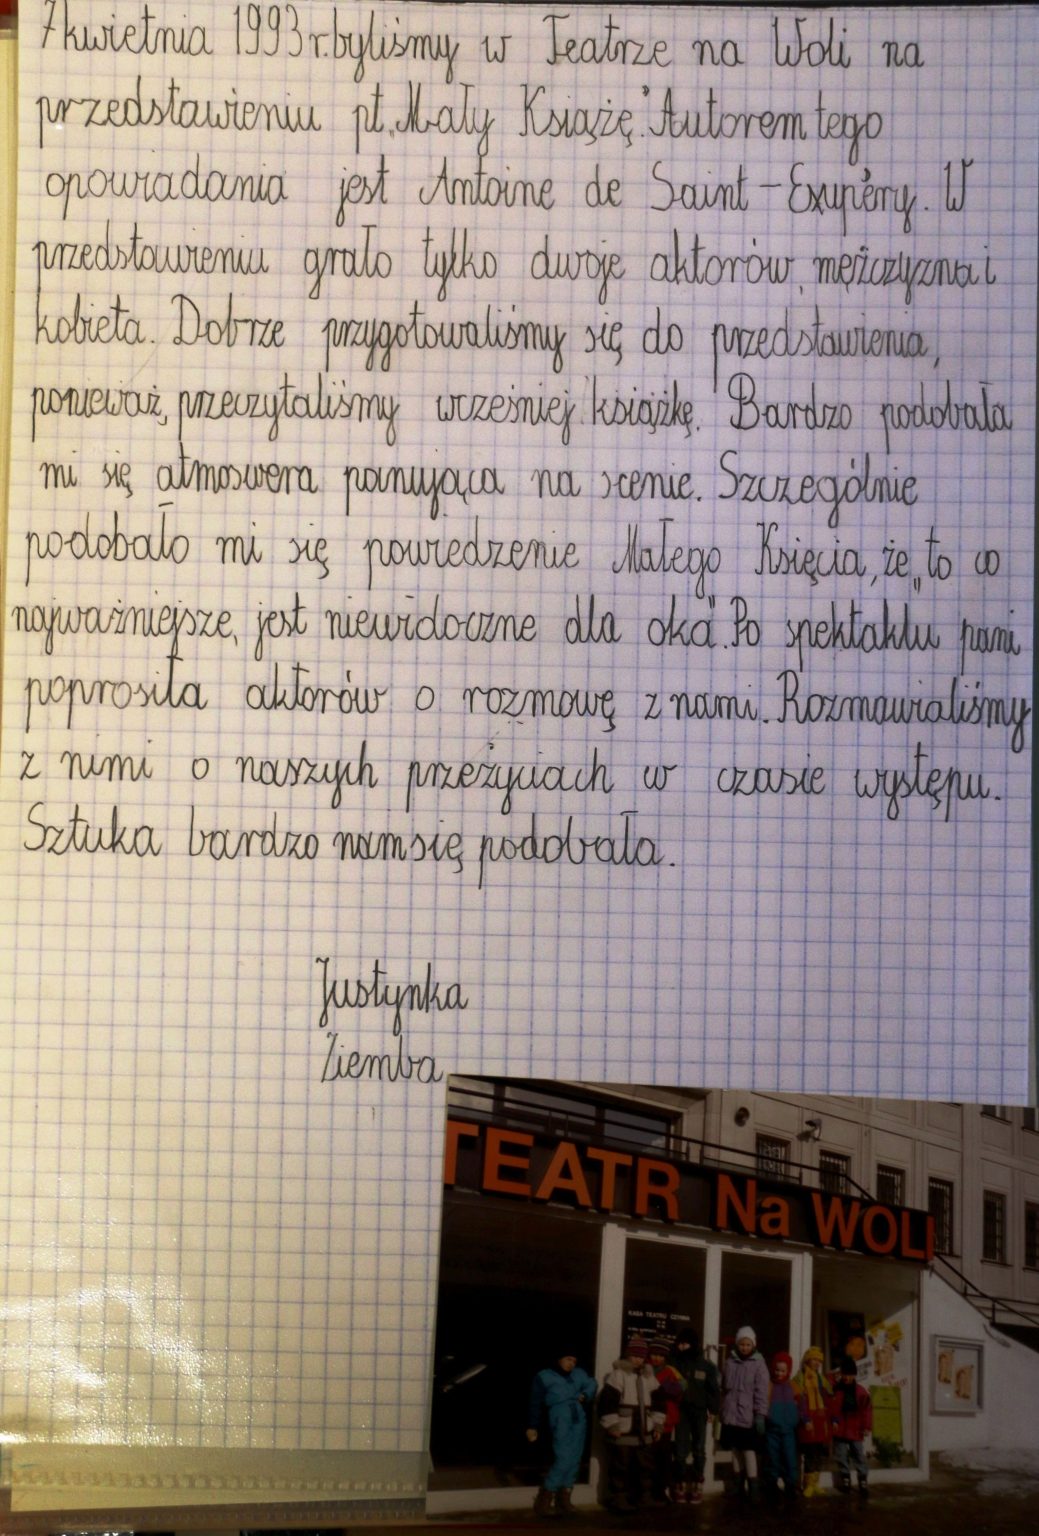 7 kwietnia 1993 r. byliśmy w Teatrze na Woli na
przedstawieniu pt. „Mały Książę". Autorem tego
opowiadania jest Antoine de Saint - Exupéry. W
przedstawieniu grało tylko dwoje aktorów, mężczyzna i
kobieta. Dobrze przygotowaliśmy się do przedstawienia,
ponieważ, przeczytaliśmy wcześniej książkę. Bardzo podobała
mi się atmoswera panująca na scenie. Szczególnie
podobało mi się powiedzenie Małego Księcia, że „to co
najważniejsze, jest niewidoczne dla oka". Po spektaklu pani
poprosiła aktorów o rozmowę z nami. Rozmawialiśmy
z nimi o naszych przeżyciach w czasie występu.
Sztuka bardzo nam się podobała.
Justynka
Ziemba
TEATR Na WOLI
KASA TEATRU CZYNNA